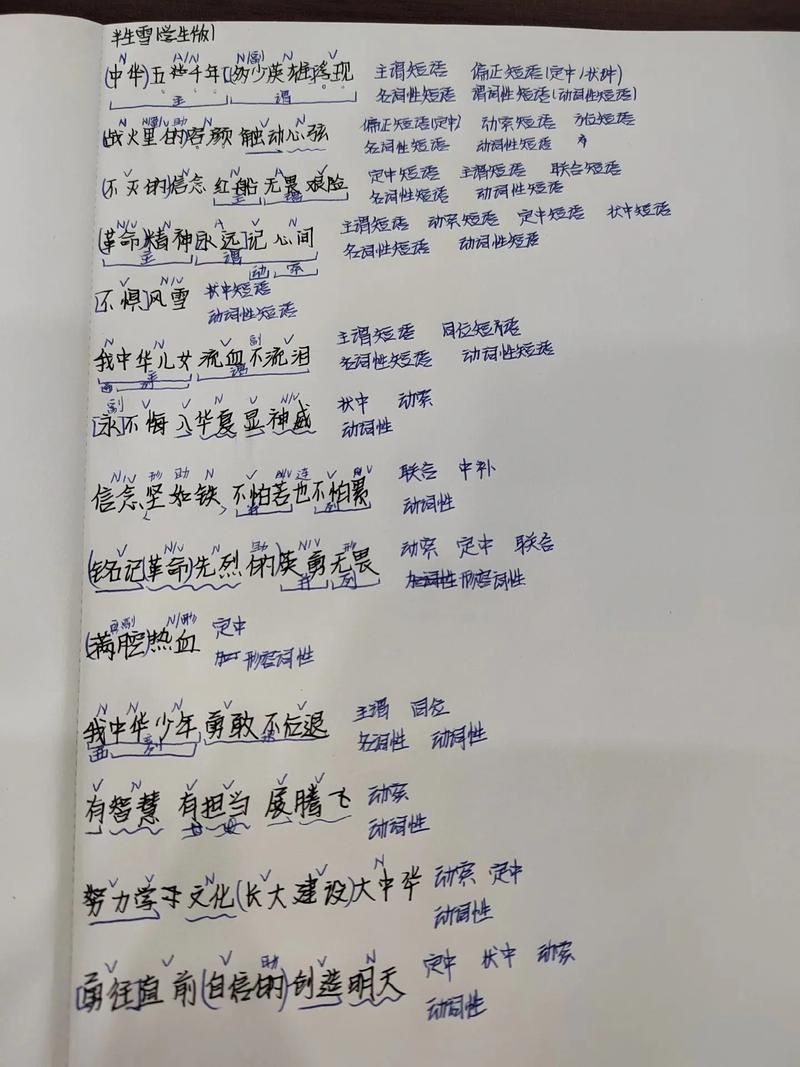 半生雪(学生版)
N A/N N/副 N V
(中华)五千年[多少英雄]涌现 主谓短语 偏正短语(定中/状中)
主 谓 名词性短语 谓词性短语(动词性短语)
战火里的容颜 触动心弦 偏正短语(定中) 动宾短语 方位短语
名词性短语 动词性短语
(不灭的)信念 红船无畏艰险 定中短语 主谓短语 联合短语
主 谓 名词性短语 动词性短语
N/V N A V N
(革命)精神[永远]记心间 主谓短语 动宾短语 定中短语 状中短语
主 谓 名词性短语 动词性短语
动 宾
V N/V
[不惧]风雪 状中短语
动词性短语
我中华儿女 流血不流泪 主谓短语 同位短语
谓 名词性短语 动词性短语
副 V V N V N/V
[永]不悔入华夏显神威 状中 动宾
动词性
N/V 形 助 N V 连
信念坚如铁 不怕苦也不怕累 联合 中补
并 列 动词性
V N/V N 助 N/V 形
铭记(革命)先烈的英勇无畏 动宾 定中 联合
并 列 形容词性
N/形
(满腔)热血 定中
形容词性
N N N V V
我中华少年 勇敢不后退 主谓 同位
名词性 动词性
V N V V V
有智慧 有担当 展腾飞 动宾
动词性
V V N V V N
努力学习文化(长大建设)大中华 动宾 定中
动词性
V V 助 V N
[勇往]直前(自信的)创造明天 定中 状中 动宾
动词性